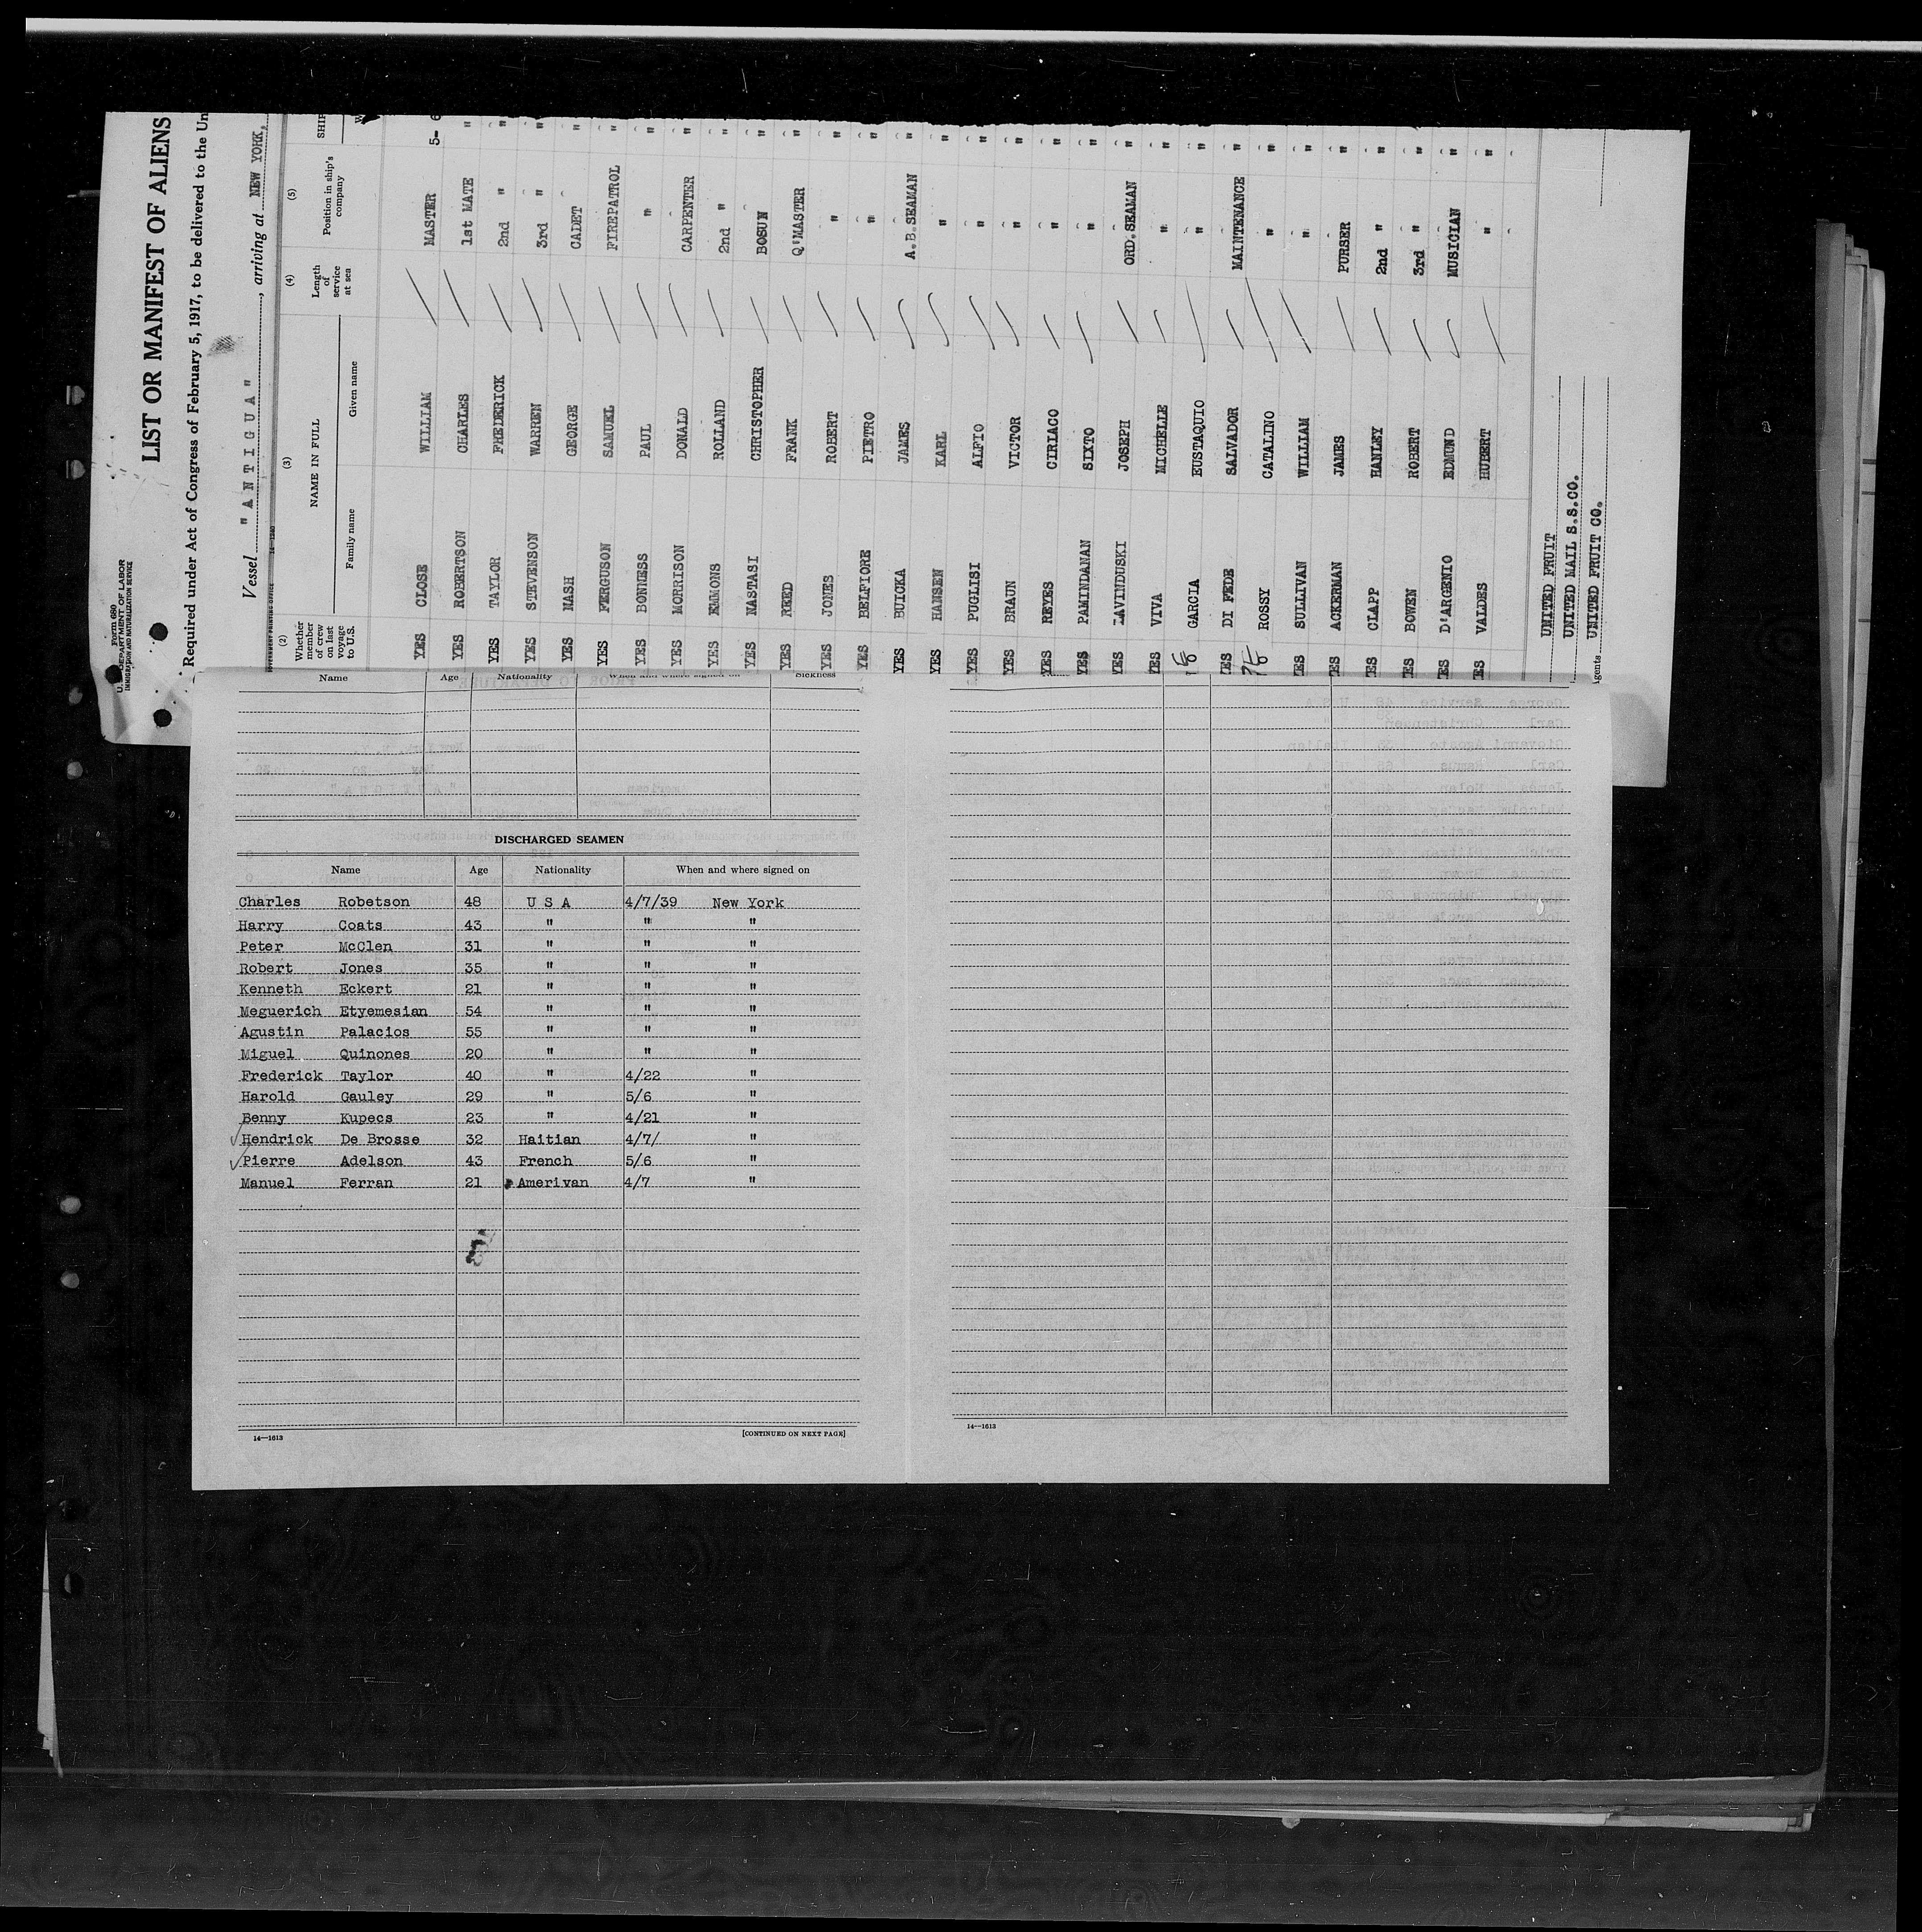 Form 680
U. S. DEPARTMENT OF LABOR
IMMIGRATION AND NATURALIZATION SERVICE
LIST OR MANIFEST OF ALIENS
Required under Act of Congress of February 5, 1917, to be delivered to the Un
Vessel "ANTIGUA", arriving at NEW YORK,
(2) (3) (4) (5)
Whether member of crew on last voyage to U.S. NAME IN FULL Length of service at sea Position in ship's company SHIP
Family name Given name
YES CLOSE WILLIAM MASTER 5- 6
YES ROBERTSON CHARLES 1st MATE "
YES TAYLOR FREDERICK 2nd " "
YES STEVENSON WARREN 3rd " "
YES NASH GEORGE CADET "
YES FERGUSON SAMUEL FIREPATROL "
YES BONNESS PAUL " "
YES MORRISON DONALD CARPENTER "
YES EMMONS ROLLAND 2nd " "
YES NASTASI CHRISTOPHER BOSUN "
YES REED FRANK Q'MASTER "
YES JONES ROBERT " "
YES BELFIORE PIETRO " "
YES BUICKA JAMES A.B.SEAMAN "
YES HANSEN KARL " "
YES PUGLISI ALFIO " "
YES BRAUN VICTOR " "
YES REYES CIRIACO " "
YES PAMINDANAN SIXTO " "
YES LAVINDUSKI JOSEPH ORD.SEAMAN "
YES VIVA MICHELLE " "
GARCIA EUSTAQUIO " "
YES DI FEDE SALVADOR MAINTENANCE "
ROSSY CATALINO " "
YES SULLIVAN WILLIAM " "
YES ACKERMAN JAMES PURSER "
YES CLAPP HANLEY 2nd " "
YES BOWEN ROBERT 3rd " "
YES D'ARGENIO EDMUND MUSICIAN "
YES VALDES HUBERT " "
UNITED FRUIT
UNITED MAIL S.S.CO.
Agents UNITED FRUIT CO.
Name Age Nationality When and where signed on Sickness
DISCHARGED SEAMEN
Name Age Nationality When and where signed on
Charles Robetson 48 U S A 4/7/39 New York
Harry Coats 43 " " "
Peter McClen 31 " " "
Robert Jones 35 " " "
Kenneth Eckert 21 " " "
Meguerich Etyemesian 54 " " "
Agustin Palacios 55 " " "
Miguel Quinones 20 " " "
Frederick Taylor 40 " 4/22 "
Harold Gauley 29 " 5/6 "
Benny Kupecs 23 " 4/21 "
Hendrick De Brosse 32 Haitian 4/7/ "
Pierre Adelson 43 French 5/6 "
Manuel Ferran 21 Amerivan 4/7 "
14—1613 [CONTINUED ON NEXT PAGE]
14—1613